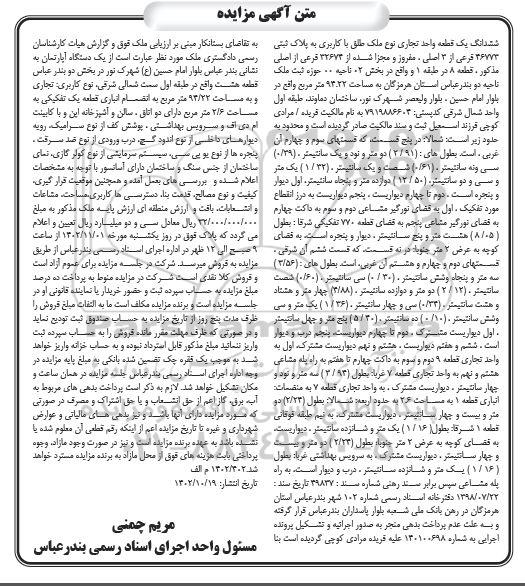 متن آگهی مزایده
ششدانگ یک قطعه واحد تجاری نوع ملک طلق با کاربری به پلاک ثبتی
۴۶۷۷۳ فرعی از ۳ اصلی ، مفروز و مجزا شده از ۳۲۶۷۳ فرعی از اصلی
مذکور ، قطعه ۸ در طبقه ۱ و واقع در بخش ۰۲ ناحیه ۰۰ حوزه ثبت ملک
ناحیه دو بندرعباس استان هرمزگان به مساحت ۹۴.۲۲ متر مربع واقع در
بلوار امام حسین ، بلوار ولیعصر شهرک نور، ساختمان دماوند، طبقه اول
واحد شمال شرقی کدپستی: ۷۹۱۹۸۸۶۶۰۴ به نام مالکیت فریده / مرادی
کوچی فرزند اسمعیل ثبت و سند مالکیت صادر گردیده است و محدود به
حدود زیر است: شمالا: در پنج قسمت، که قسمتهای سوم و چهارم آن
غربی ، است. بطول های : (۲/۹۱) دو متر و نود و یک سانتیمتر . (۰/۳۹)
سی ونه سانتیمتر . (۰/۶۱) شصت و یک سانتیمتر . (۱/۳۲) یک متر
و سی و دو سانتیمتر. (۱۲/۵۰) دوازده متر و پنجاه سانتیمتر، اول دیوار
و پنجره است . دوم تا چهارم دیواریست ، پنجم دیواریست به درز انقطاع
مورد تفکیک ، اول به فضای نورگیر مشاعی دوم و سوم به داکت چهارم
به فضای نورگیر مشاعی پنجم به فضای قطعه ۷۷۰ تفکیکی شرقا : بطول
( ۸/۰۵ ) هشت متر و پنج سانتیمتر ، دیوار و پنجره است، به فضای
کوچه به عرض ۲ متر جنوبا: در نه قسمت، که قسمت ششم آن شرقی ،
قسمتهای دوم و چهارم و هشتم آن غربی، است. بطول های : (۳/۵۶)
سه متر و پنجاه وشش سانتیمتر . (۰/۳۰) سی سانتیمتر . (۰/۶۰) شصت
سانتیمتر . (۲/۱۲) دو متر و دوازده سانتیمتر . (۴/۸۸) چهار متر و هشتاد
و هشت سانتیمتر . (۰/۳۴) سی و چهار سانتیمتر . (۱/۳۶) یک متر و سی
وشش سانتیمتر . (۰/۱۰) ده سانتیمتر . (۵/۴۰) پنج متر و چهل سانتیمتر
، اول دیواریست مشترک ، دوم تا چهارم دیواریست، پنجم درب و دیوار
است ، ششم و هفتم دیواریست ، هشتم و نهم دیواریست مشترک، اول به
واحد تجاری قطعه ۹ دوم و سوم به داکت چهارم تا هفتم به راه پله مشاعی
هشتم و نهم به واحد تجاری قطعه ۷ غربا: بطول (۳/۹۴) سه متر و نود و
چهار سانتیمتر ، دیواریست مشترک ، به واحد تجاری قطعه ۷ به منضمات:
انباری قطعه ۱ به مساحت ۲.۶ به حدود اربعه: شمالا: بطول (۲/۲۴) دو
متر و بیست و چهار سانتیمتر ، دیواریست مشترک، به نیم طبقه فوقانی
قطعه ۱ شرقا: بطول (۱/۱۶) یک متر و شانزده سانتیمتر ، دیواریست
به فضای کوچه به عرض ۲ متر جنوبا: بطول (۲/۲۴) دو متر و بیست
و چهار سانتیمتر ، دیواریست مشترک، به سرویس بهداشتی غربا: بطول
( ۱/۱۶ ) یک متر و شانزده سانتیمتر ، درب و دیوار است، به راه
پله مشاعی سپس برابر سند رهنی شماره سند : ۴۹۸۳۷ تاریخ سند :
۱۳۹۸/۰۷/۲۲ دفترخانه اسناد رسمی شماره ۱۰۲ شهر بندرعباس استان
هرمزگان در رهن بانک ملی شعبه بلوار پاسداران بندرعباس قرار گرفته
و به علت عدم پرداخت بدهی منجر به صدور اجرائیه و تشکیل پرونده
اجرایی به شماره ۱۴۰۱۰۰۶۹۸ علیه فریده مرادی کوچی گردیده است بنا
به تقاضای بستانکار مبنی بر ارزیابی ملک فوق و گزارش هیات کارشناسان
رسمی دادگستری ملک مورد نظر عبارت است از یک دستگاه آپارتمان به
نشانی بندر عباس بلوار امام حسین (ع) شهرک نور در بخش دو بندر عباس
قطعه هشت واقع در طبقه اول سمت شمالی شرقی، نوع کاربری: تجاری
و به مساحت ۹۴/۲۲ متر مربع به انضمام انباری قطعه یک تفکیکی به
مساحت ۲/۶ متر مربع دارای دو اتاق . سالن و آشپزخانه اپن و با کابینت
ام دی اف و سرویس بهداشتی . پوشش کف از نوع سرامیک، رویه
دیوارهای داخلی از نوع اندود گچ، درب ورودی از نوع ضد سرقت ،
پنجره ها از نوع یو پی سی، سیستم سرمایشی از نوع کولر گازی، نمای
ساختمان از جنس سنگ و ساختمان دارای آسانسور با توجه به مشخصات
اعلام شده و بررسی های بعمل آمده و همچنین موقعیت قرار گیری،
کیفیت و نوع مصالح، قدمت بنا، دسترسی ها کاربری،مساحت، مشاعات
و انشعابات، بافت و ارزش منطقه ای ارزش پایه ملک مذکور به مبلغ
۳۲/۰۰۰/۰۰۰/۰۰۰ ریال معادل سی و دو میلیارد ریال تعیین و اعلام
می گردد که پلاک فوق در روز یکشنبه مورخه ۱۴۰۲/۱۱/۰۱ از ساعت
۹ صبح الی ۱۲ ظهر در اداره اجرای اسناد رسمی بندرعباس از طریق
مزایده به فروش میرسد. شرکت در جلسه مزایده برای عموم آزاد است
و فروش کلا نقدی است شرکت در مزایده منوط به پرداخت ده درصد
مبلغ مزایده به حساب سپرده ثبت و حضور خریدار یا نماینده قانونی او در
جلسه مزایده است و برنده مزایده مکلف است ما به التفات مبلغ فروش را
ظرف مدت پنج روز از تاریخ مزایده به حساب صندوق ثبت تودیع نماید
و در صورتی که ظرف مهلت مقرر مانده فروش را به حساب سپرده ثبت
واریز ننمایند مبلغ مذکور قابل استرداد نبوده و به حساب خزانه واریز خواهد
شد به موجب یک فقره چک تضمین شده بانکی به مبلغ پایه مزایده در
وجه اداره اجرای اسناد رسمی بندرعباس جلسه مزایده در همان ساعت و
مکان تشکیل خواهد شد. لازم به ذکر است پرداخت بدهی های مربوط به
آب، برق، گاز اعم از حق انشعاب و یا حق اشتراک و مصرف در صورتی
که مورد مزایده دارای آنها باشد و نیز بدهی های مالیاتی و عوارض
شهرداری و غیره تا تاریخ مزایده اعم از اینکه رقم قطعی آن معلوم شده یا
نشده باشد به عهده برنده مزایده است و نیز در صورت وجود مازاد، وجوه
پرداختی بابت هزینه های فوق از محل مازاد به برنده مزایده مسترد خواهد
شد.۱۴۰۲/۴۰۲ م الف
تاریخ انتشار: ۱۴۰۲/۱۰/۱۹
مریم چمنی
مسئول واحد اجرای اسناد رسمی بندرعباس